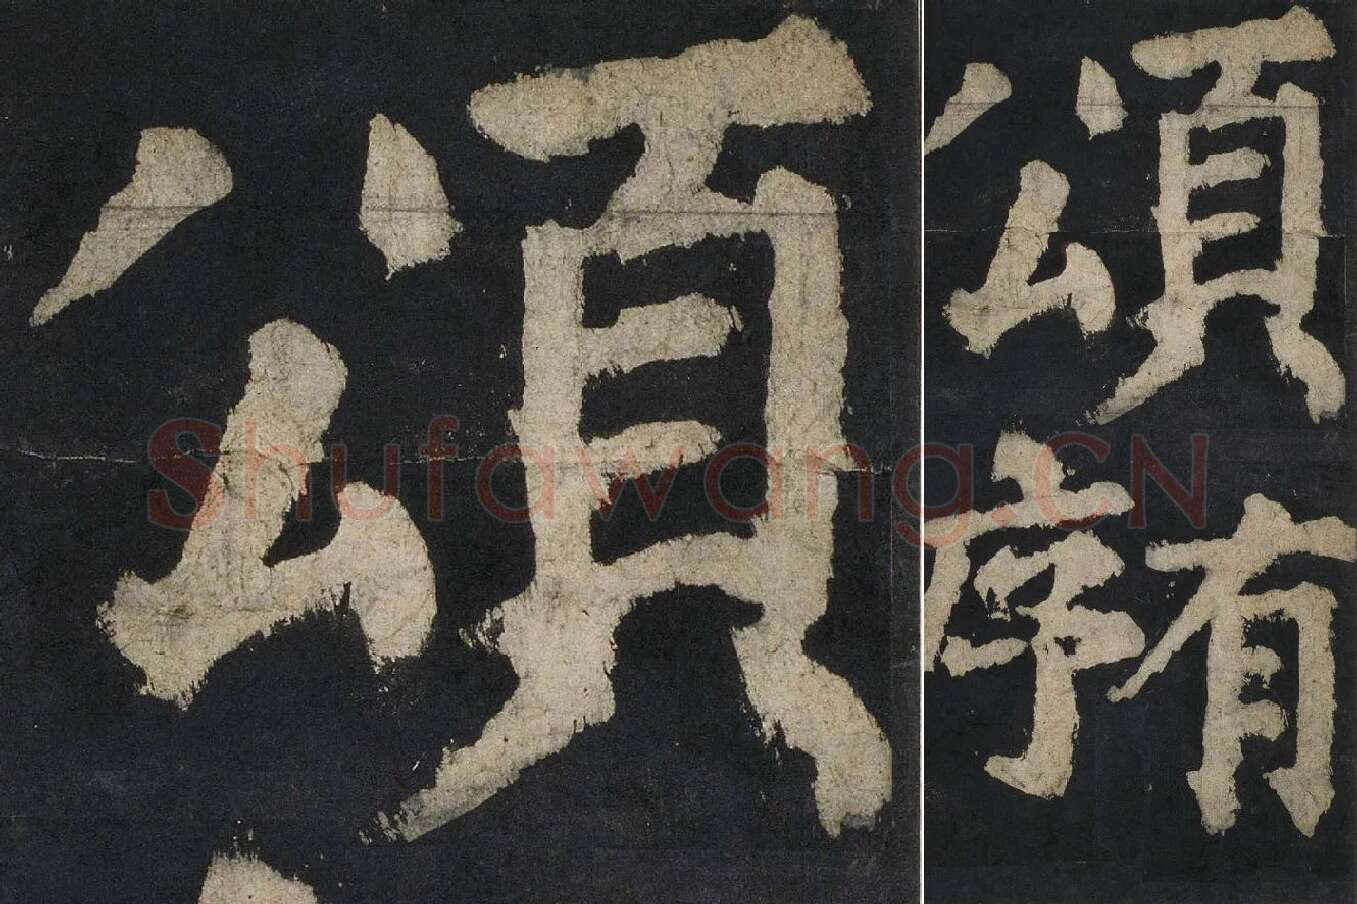 頌
頌
有
序
Shufawang.CN